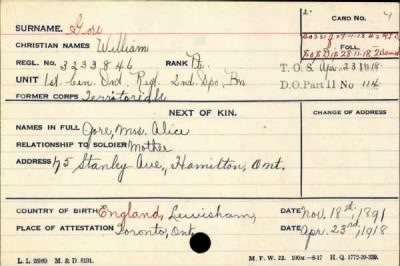 SURNAME. Gore
CARD No. 4
CHRISTIAN NAMES William
FOLL.
REGL. No. 3233846 RANK Pte.
T.O.S. Apr. 23 1918
UNIT 1st Cen. Ont. Regt. 2nd Dpo. Bn
D.O. Part II No 114
FORMER CORPS Territorials
NEXT OF KIN.
CHANGE OF ADDRESS
NAMES IN FULL Gore, Mrs. Alice
RELATIONSHIP TO SOLDIER Mother
ADDRESS 75 Stanley Ave., Hamilton, Ont.
COUNTRY OF BIRTH England, Lewisham, DATE Nov. 18th, 1891
PLACE OF ATTESTATION Toronto, Ont. DATE Apr. 23rd, 1918
L. L. 25989 M. & D. 8191. M. F. W. 22. H. Q. 1772-39-339.